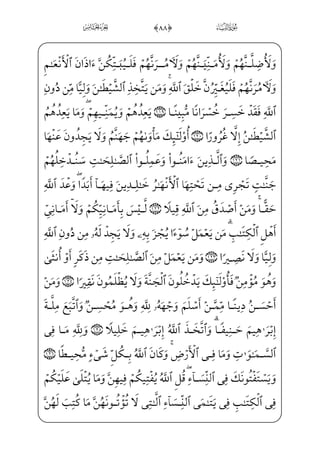 سُورَةُ النِّسَاءِ ﴿٨٨﴾ الجُزْءُ الخَامِسُ
وَلَأُضِلَّنَّهُمْ وَلَأُمَنِّيَنَّهُمْ وَلَآمُرَنَّهُمْ فَلَيُبَتِّكُنَّ ءَاذَانَ ٱلْأَنْعَـٰمِ
وَلَآمُرَنَّهُمْ فَلَيُغَيِّرُنَّ خَلْقَ ٱللَّهِ ۚ وَمَن يَتَّخِذِ ٱلشَّيْطَـٰنَ وَلِيًّا مِّن دُونِ
ٱللَّهِ فَقَدْ خَسِرَ خُسْرَانًا مُّبِينًا ﴿١١٩﴾ يَعِدُهُمْ وَيُمَنِّيهِمْ ۖ وَمَا يَعِدُهُمُ
ٱلشَّيْطَـٰنُ إِلَّا غُرُورًا ﴿١٢٠﴾ أُو۟لَـٰٓئِكَ مَأْوَىٰهُمْ جَهَنَّمُ وَلَا يَجِدُونَ عَنْهَا
مَحِيصًا ﴿١٢١﴾ وَٱلَّذِينَ ءَامَنُوا۟ وَعَمِلُوا۟ ٱلصَّـٰلِحَـٰتِ سَنُدْخِلُهُمْ
جَنَّـٰتٍ تَجْرِى مِن تَحْتِهَا ٱلْأَنْهَـٰرُ خَـٰلِدِينَ فِيهَآ أَبَدًا ۖ وَعْدَ ٱللَّهِ
حَقًّا ۚ وَمَنْ أَصْدَقُ مِنَ ٱللَّهِ قِيلًا ﴿١٢٢﴾ لَّيْسَ بِأَمَانِيِّكُمْ وَلَآ أَمَانِىِّ
أَهْلِ ٱلْكِتَـٰبِ ۗ مَن يَعْمَلْ سُوٓءًا يُجْزَ بِهِۦ وَلَا يَجِدْ لَهُۥ مِن دُونِ ٱللَّهِ
وَلِيًّا وَلَا نَصِيرًا ﴿١٢٣﴾ وَمَن يَعْمَلْ مِنَ ٱلصَّـٰلِحَـٰتِ مِن ذَكَرٍ أَوْ أُنثَىٰ
وَهُوَ مُؤْمِنٌ فَأُو۟لَـٰٓئِكَ يَدْخُلُونَ ٱلْجَنَّةَ وَلَا يُظْلَمُونَ نَقِيرًا ﴿١٢٤﴾ وَمَنْ
أَحْسَنُ دِينًا مِّمَّنْ أَسْلَمَ وَجْهَهُۥ لِلَّهِ وَهُوَ مُحْسِنٌ وَٱتَّبَعَ مِلَّةَ
إِبْرَٰهِيمَ حَنِيفًا ۗ وَٱتَّخَذَ ٱللَّهُ إِبْرَٰهِيمَ خَلِيلًا ﴿١٢٥﴾ وَلِلَّهِ مَا فِى
ٱلسَّمَـٰوَٰتِ وَمَا فِى ٱلْأَرْضِ ۚ وَكَانَ ٱللَّهُ بِكُلِّ شَىْءٍ مُّحِيطًا ﴿١٢٦﴾
وَيَسْتَفْتُونَكَ فِى ٱلنِّسَآءِ ۖ قُلِ ٱللَّهُ يُفْتِيكُمْ فِيهِنَّ وَمَا يُتْلَىٰ عَلَيْكُمْ
فِى ٱلْكِتَـٰبِ فِى يَتَـٰمَى ٱلنِّسَآءِ ٱلَّـٰتِى لَا تُؤْتُونَهُنَّ مَا كُتِبَ لَهُنَّ